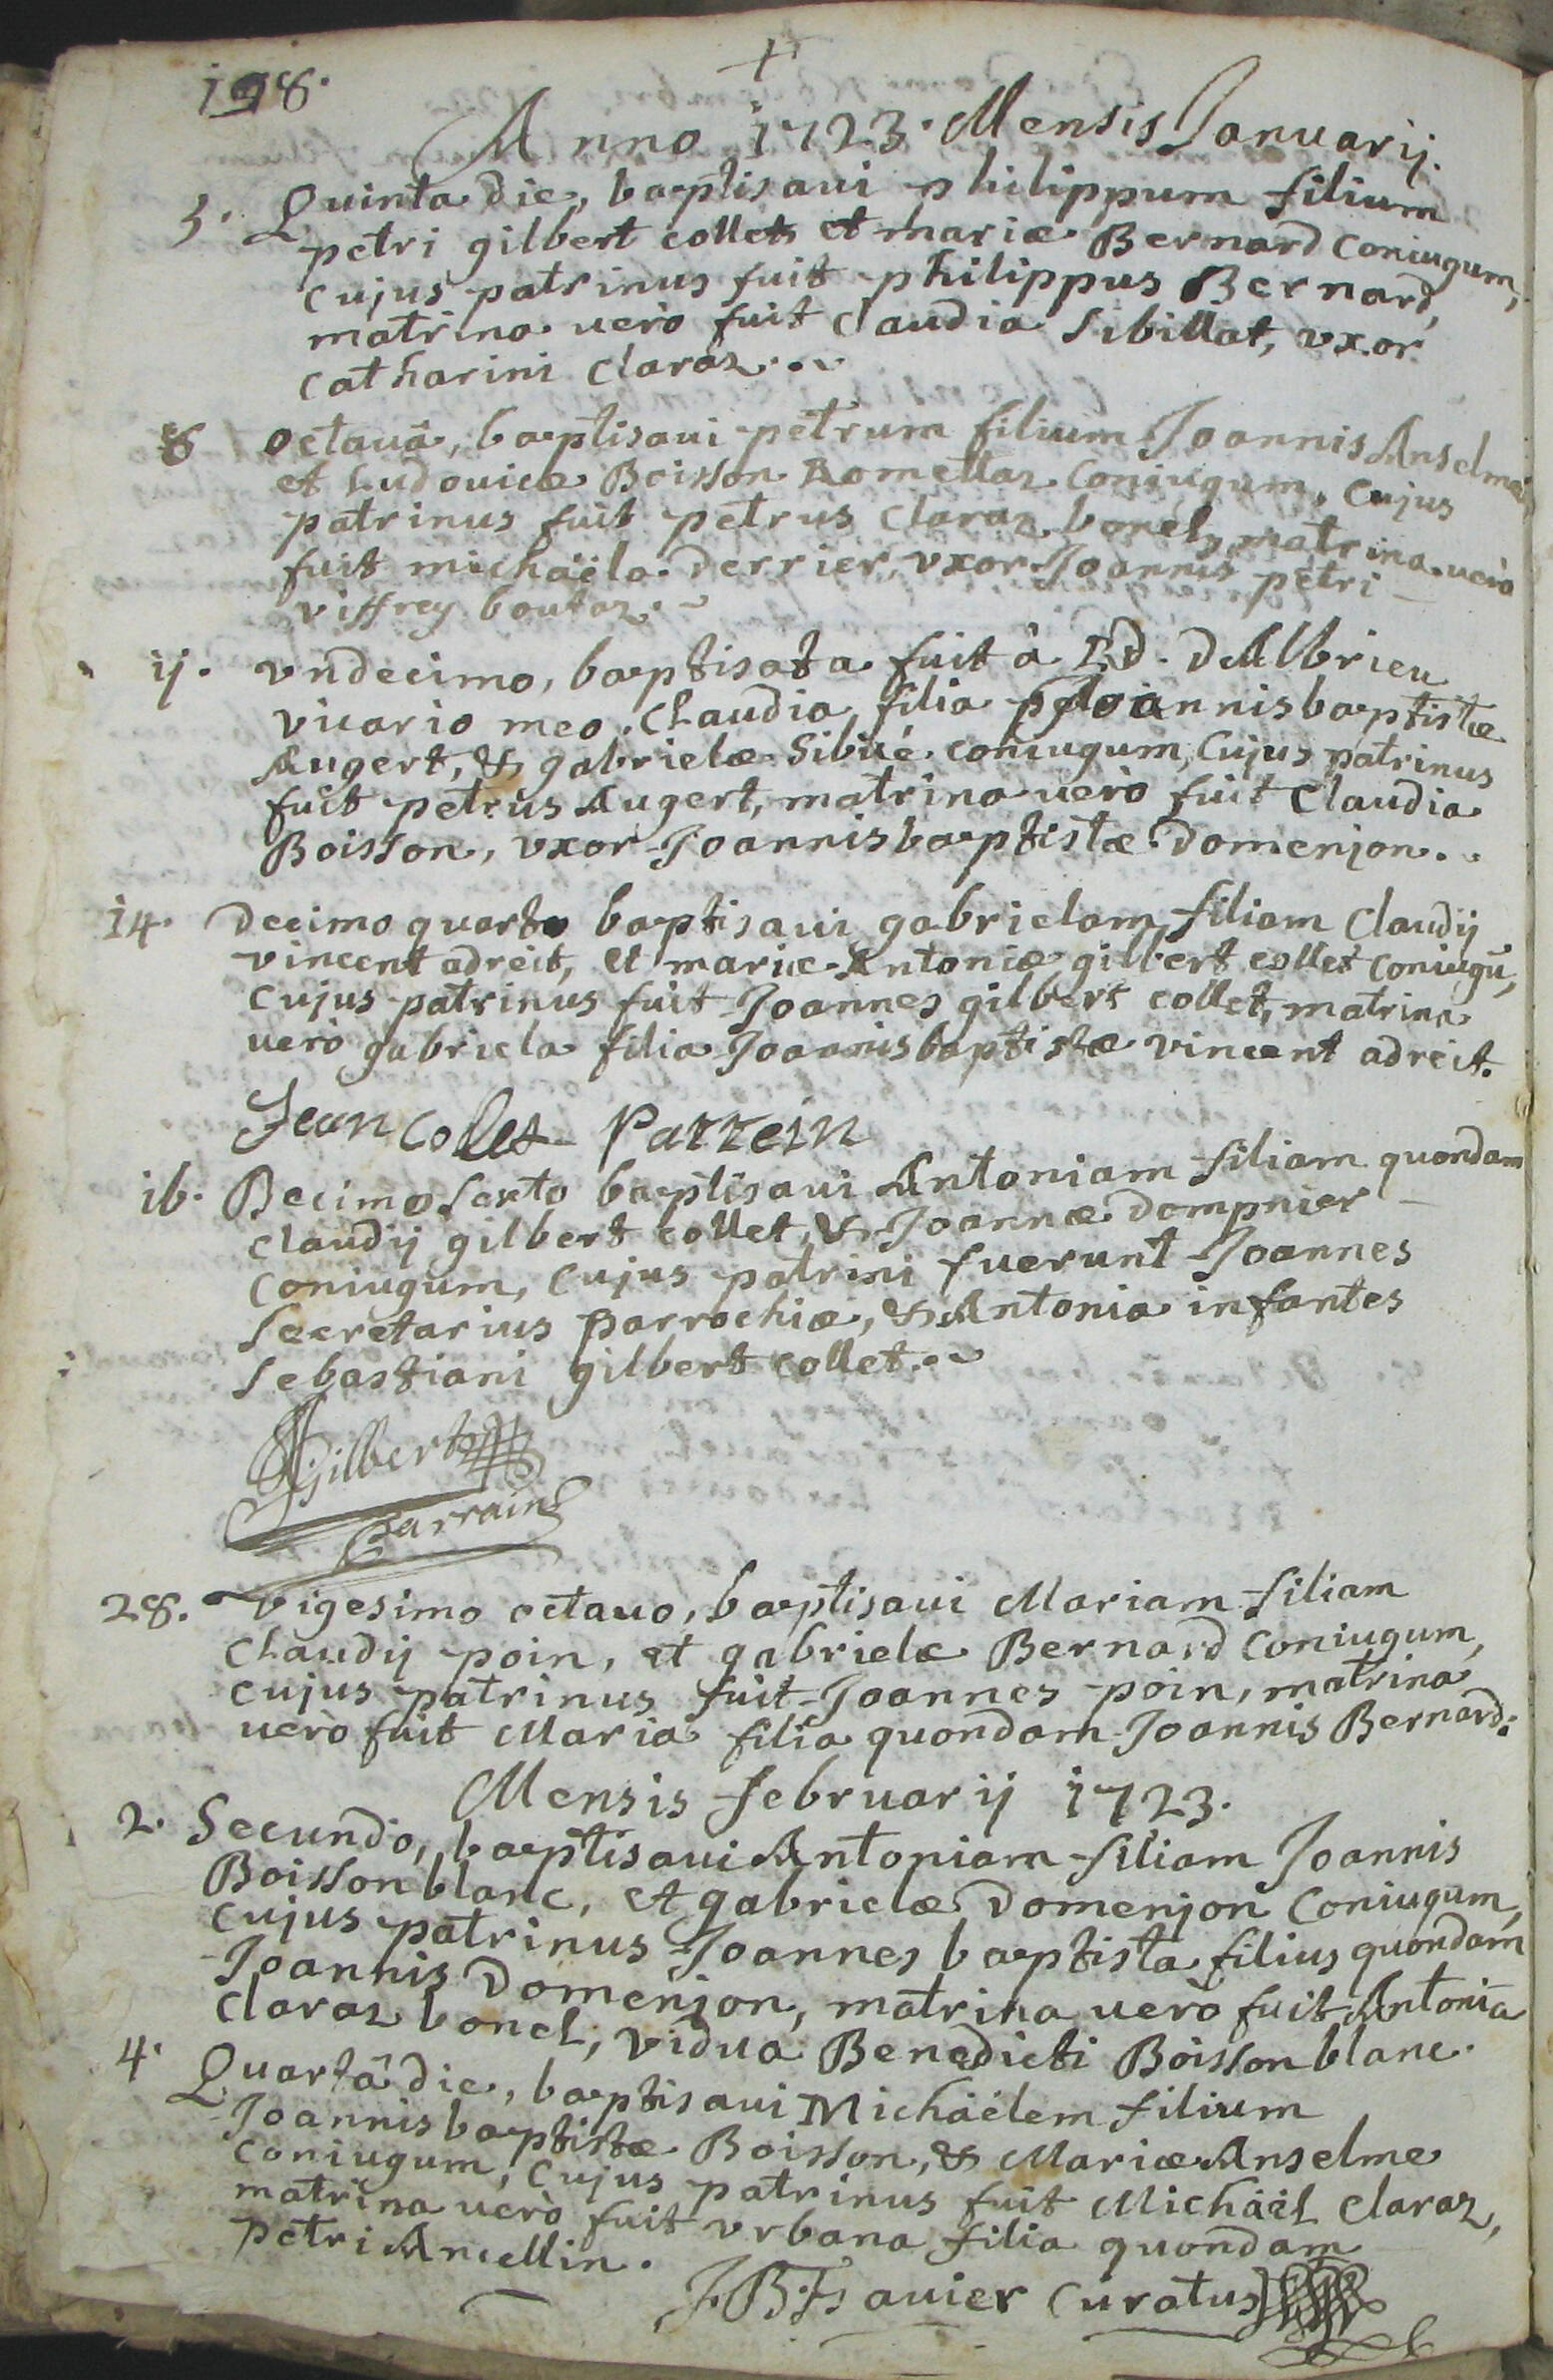 198.
+
Anno 1723. Mensis Januarij.
5. Quinta die, baptisaui philippum filium
petri gilbert collet et mariæ Bernard coniugum,
cujus patrinus fuit philippus Bernard,
matrina uerò fuit claudia Sibillat, vxor
catharini claraz.
8 octauâ, baptisaui petrum filium Joannis Anselme
et Ludouicæ Boisson Romettaz coniugum, cujus
patrinus fuit petrus claraz bonel, matrina uerò
fuit michaëla derrier, vxor Joannis petri
viffrey boutaz.
ij. vndecimo, baptisata fuit à Rd. DAlbrieu
vicario meo. Claudia filia Joannisbaptistæ
Augert, & gabrielæ Sibué coniugum, cujus patrinus
fuit petrus Augert, matrina uerò fuit claudia
Boisson, vxor Joannisbaptistæ Domenjon.
14. Decimo quarto baptisaui gabrielam filiam claudij
vincent adreit, et mariæ-Antoniæ gilbert collet coniugū,
cujus patrinus fuit Joannes gilbert collet, matrina
uerò gabriela filia Joannisbaptistæ vincent adreit.
Jean Collet Parrein
16. Decimo Sexto baptisaui Antoniam filiam quondam
claudij gilbert collet, & Joannæ dompnier
coniugum, cujus patrini fuerunt Joannes
Secretarius parrochiæ, & Antonia infantes
Sebastiani gilbert collet.
Gilbert
Parrain
28. vigesimo octauo, baptisaui Mariam filiam
Claudij poin, et gabrielæ Bernard coniugum,
cujus patrinus fuit Joannes poin, matrina
uerò fuit Maria filia quondam Joannis Bernard.
Mensis februarij 1723.
2. Secundo, baptisaui Antoniam filiam Joannis
Boisson blanc, et gabrielæ Domenjon coniugum,
cujus patrinus Joannes baptista filius quondam
Joannis Domenjon, matrina uerò fuit Antonia
claraz bonel, vidua Benedicti Boisson blanc.
4. Quartâ die, baptisaui Michäelem filium
Joannisbaptistæ Boisson, & Mariæ Anselme
coniugum, cujus patrinus fuit Michäel claraz,
matrina uerò fuit vrbana filia quondam
petri Ancellin.
J.B. Fauier Curatus